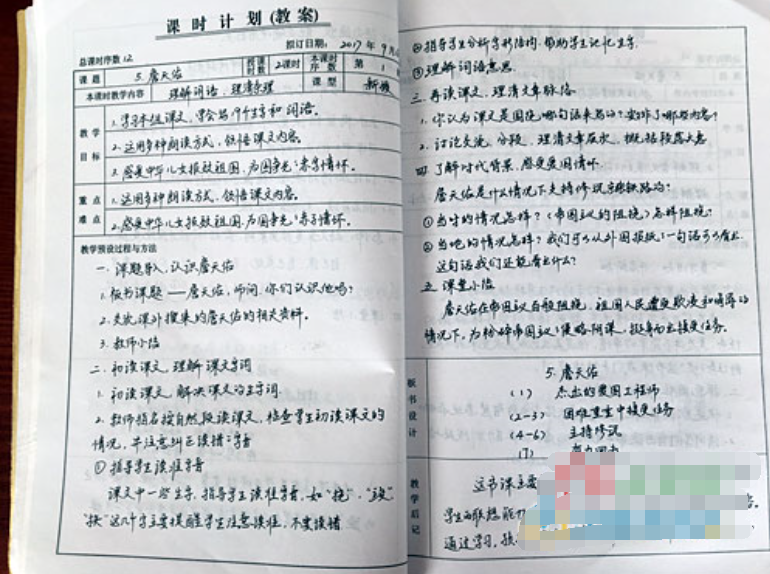 课时计划(教案)
拟订日期: 2017年9月
总课时序数 12 授课时数 2课时 本课时序数 第 1
课题 5.詹天佑
本课时教学内容 理解词语,理清条理 课型 新授
教学目标
1.学习本组课文,学会写个生字和词语。
2.运用多种朗读方式,领悟课文内容。
3.感受中华儿女报效祖国,为国争光的情怀。
重点难点
1.运用多种朗读方式,领悟课文内容。
2.感受中华儿女报效祖国,为国争光的情怀。
教学预设过程与方法
一.课题导入,认识詹天佑
1.板书课题——詹天佑,师问:你们认识他吗?
2.交流课外搜集的詹天佑的相关资料。
3.教师小结
二.初读课文,理解课文字词
1.初读课文,解决课文的生字词
2.教师指名按自然段读课文,检查学生初读课文的
情况,并注意纠正读错的字音
①指导学生读准字音
课文中一些生字,指导学生读准字音,如“挠”,
这几个字主要提醒学生注意读准,不要读错
②指导学生分析字形结构,帮助学生记忆生字
③理解词语意思
三.再读课文,理清文章脉络
1.你认为课文是围绕哪句话来写的?安排了哪些内容?
2.讨论交流,分段,理清文章层次,概括段落大意
四.了解时代背景,感受爱国情怀
詹天佑是什么情况下主持修筑京张铁路的?
①当时的情况怎样?(帝国主义的阻挠)怎样阻挠?
②当他的情况怎样?我们可以从外国报纸的一句话可以看出
这句话我们还能看出什么?
五.课堂小结
詹天佑在帝国主义百般阻挠,祖国人民遭受欺辱和嘲笑的
情况下,为粉碎帝国主义的侵略阴谋,挺身而出接受任务。
板书设计
5.詹天佑
(1) 杰出的爱国工程师
(2-3) 困难重重中接受任务
(4-6) 主持修筑
(7)
教学后记
这节课主要
学生的联想能力
通过学习,